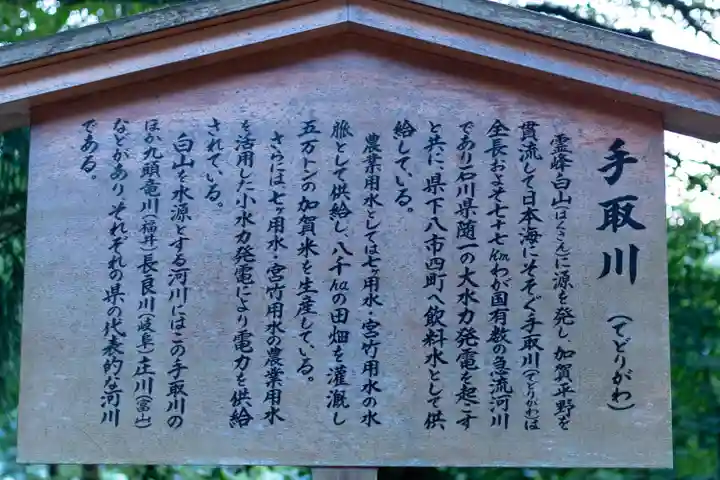 手取川(てどりがわ)
霊峰白山(はくさん)に源を発し、加賀平野を
貫流して日本海にそそぐ手取川(てどりがわ)は
全長およそ七十七㎞わが国有数の急流河川
であり石川県随一の大水力発電を起こす
と共に、県下八市四町へ飲料水として供
給している。
農業用水としては七ヶ用水・宮竹用水の水
脈として供給し、八千㏊の田畑を灌漑し
五万トンの加賀米を生産している。
さらには、七ヶ用水・宮竹用水の農業用水
を活用した小水力発電により電力を供給
されている。
白山を水源とする河川にはこの手取川の
ほか九頭竜川(福井)長良川(岐阜)庄川(富山)
などがあり、それぞれの県の代表的な河川
である。